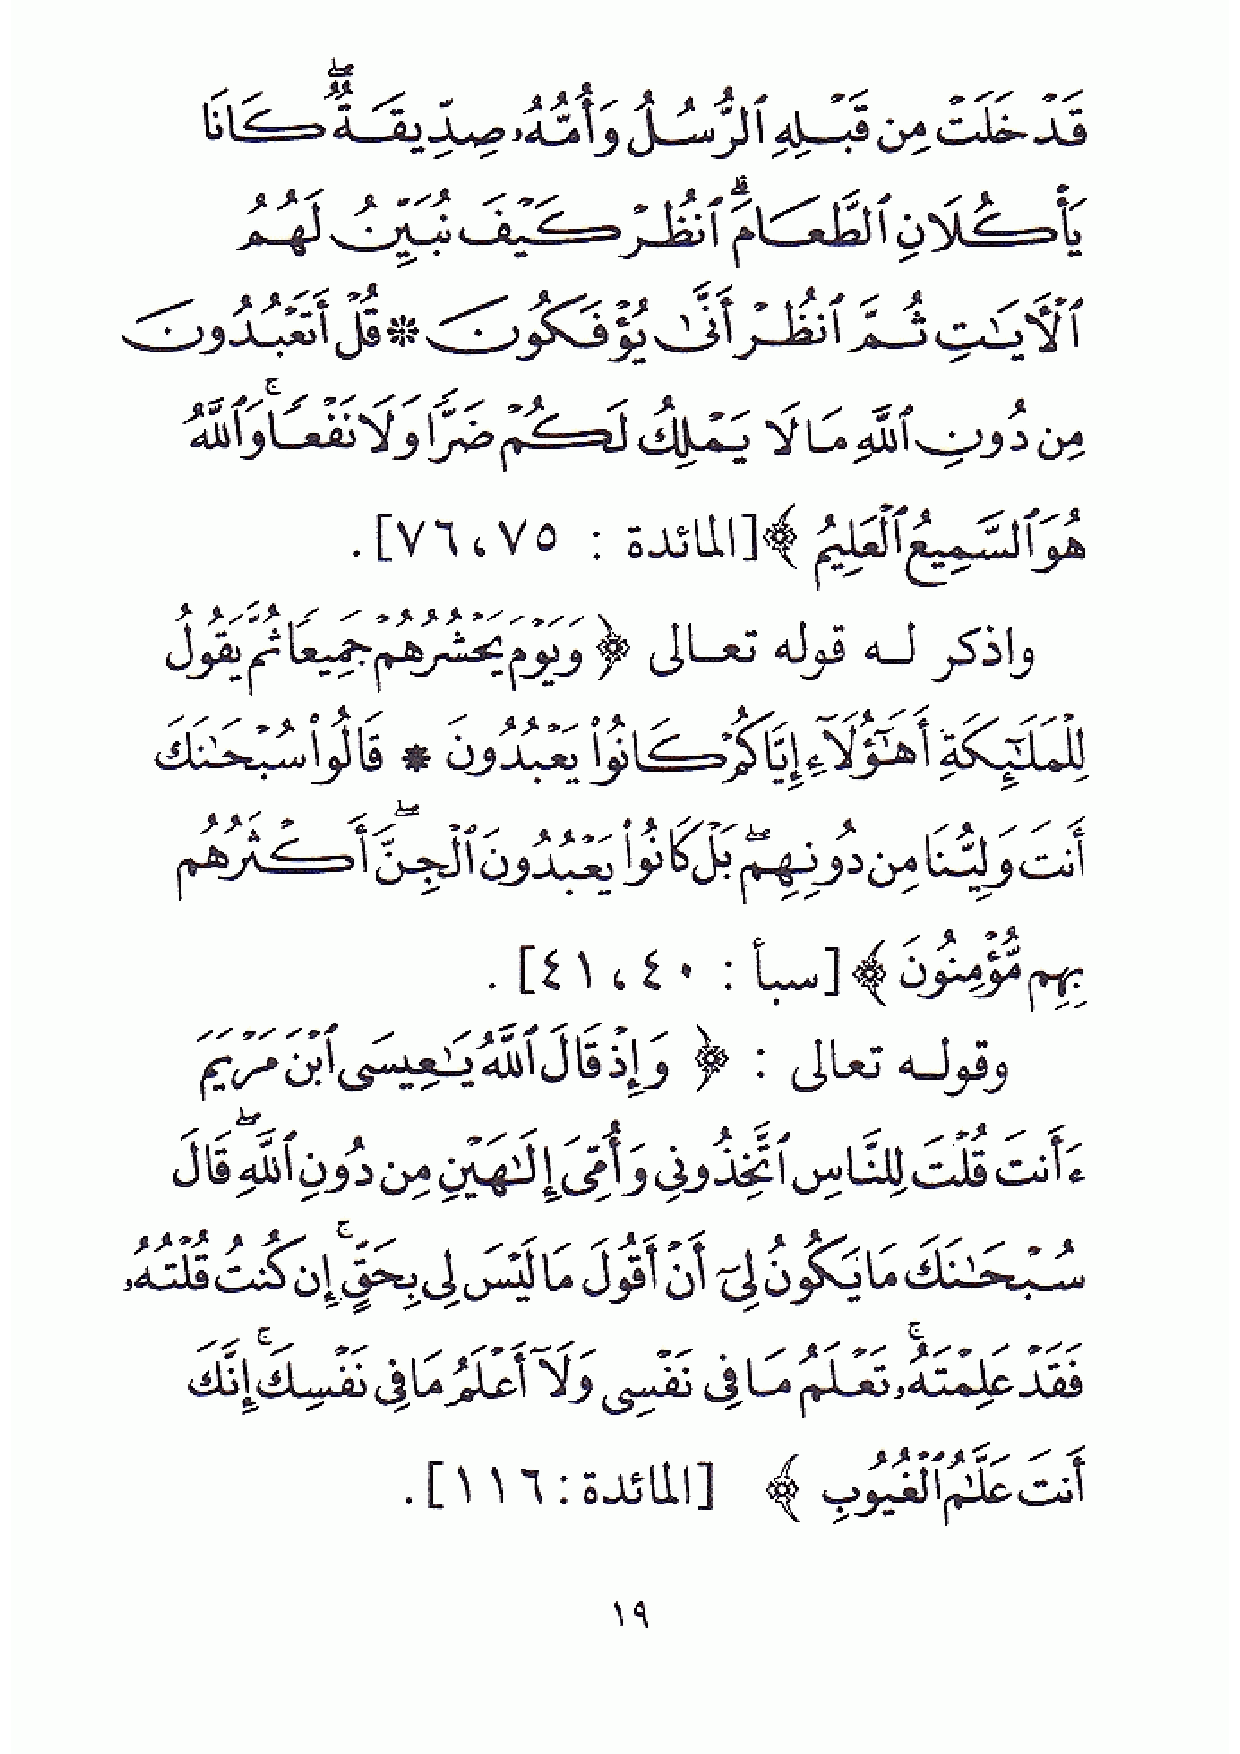 قَدْ خَلَتْ مِن قَبْلِهِ ٱلرُّسُلُ وَأُمُّهُۥ صِدِّيقَةٌۖ كَانَا
يَأْكُلَانِ ٱلطَّعَامَۗ ٱنظُرْ كَيْفَ نُبَيِّنُ لَهُمُ
ٱلْأٓيَٰتِ ثُمَّ ٱنظُرْ أَنَّىٰ يُؤْفَكُونَ * قُلْ أَتَعْبُدُونَ
مِن دُونِ ٱللَّهِ مَا لَا يَمْلِكُ لَكُمْ ضَرًّا وَلَا نَفْعًاۚ وَٱللَّهُ
هُوَ ٱلسَّمِيعُ ٱلْعَلِيمُ ﴾ [المائدة : ٧٥ ، ٧٦] .
واذكر لـه قوله تعـالى ﴿ وَيَوْمَ يَحْشُرُهُمْ جَمِيعًا ثُمَّ يَقُولُ
لِلْمَلَٰٓئِكَةِ أَهَٰٓؤُلَآءِ إِيَّاكُمْ كَانُوا۟ يَعْبُدُونَ * قَالُوا۟ سُبْحَٰنَكَ
أَنتَ وَلِيُّنَا مِن دُونِهِمۖ بَلْ كَانُوا۟ يَعْبُدُونَ ٱلْجِنَّۖ أَكْثَرُهُم
بِهِم مُّؤْمِنُونَ ﴾ [سبأ : ٤٠ ، ٤١] .
وقولـه تعالى : ﴿ وَإِذْ قَالَ ٱللَّهُ يَٰعِيسَى ٱبْنَ مَرْيَمَ
ءَأَنتَ قُلْتَ لِلنَّاسِ ٱتَّخِذُونِي وَأُمِّيَ إِلَٰهَيْنِ مِن دُونِ ٱللَّهِۖ قَالَ
سُبْحَٰنَكَ مَا يَكُونُ لِيٓ أَنْ أَقُولَ مَا لَيْسَ لِي بِحَقٍّۚ إِن كُنتُ قُلْتُهُۥ
فَقَدْ عَلِمْتَهُۥۚ تَعْلَمُ مَا فِي نَفْسِي وَلَآ أَعْلَمُ مَا فِي نَفْسِكَۚ إِنَّكَ
أَنتَ عَلَّٰمُ ٱلْغُيُوبِ ﴾ [المائدة : ١١٦] .
١٩